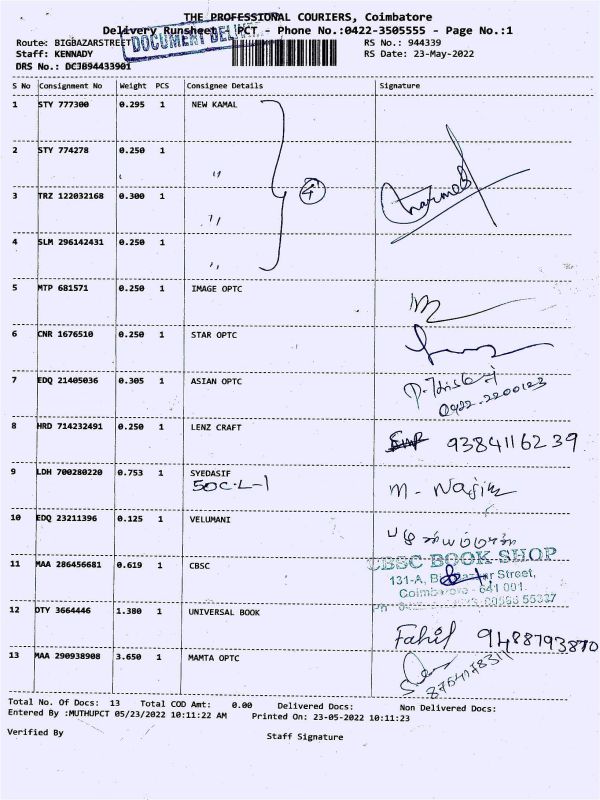 THE PROFESSIONAL COURIERS, Coimbatore
Delivery Runsheet PCT - Phone No.:0422-3505555 - Page No.:1
DOCUMENT
Route: BIGBAZARSTREET RS No.: 944339
Staff: KENNADY RS Date: 23-May-2022
DRS No.: DCJ894433901
S No Consignment No Weight PCS Consignee Details Signature
1 STY 777300 0.295 1 NEW KAMAL
2 STY 774278 0.250 1 "
3 TRZ 122032168 0.300 1 "
4
4 SLM 296142431 0.250 1 "
5 MTP 681571 0.250 1 IMAGE OPTC
6 CNR 1676510 0.250 1 STAR OPTC
7 EDQ 21405036 0.305 1 ASIAN OPTC
0422-2200123
8 HRD 714232491 0.250 1 LENZ CRAFT
9384116239
9 LDH 700280220 0.753 1 SYEDASIF
50C-L-1 M - Nasim
10 EDQ 23211396 0.125 1 VELUMANI
11 MAA 286456681 0.619 1 CBSC
CBSC BOOK SHOP
131-A, Street,
Coimbatore - 641 001
12 DTY 3664446 1.380 1 UNIVERSAL BOOK
Fahil 9488793870
13 MAA 290938908 3.650 1 MAMTA OPTC
Total No. Of Docs: 13 Total COD Amt: 0.00 Delivered Docs: Non Delivered Docs:
Entered By :MUTHUPCT 05/23/2022 10:11:22 AM Printed On: 23-05-2022 10:11:23
Verified By Staff Signature